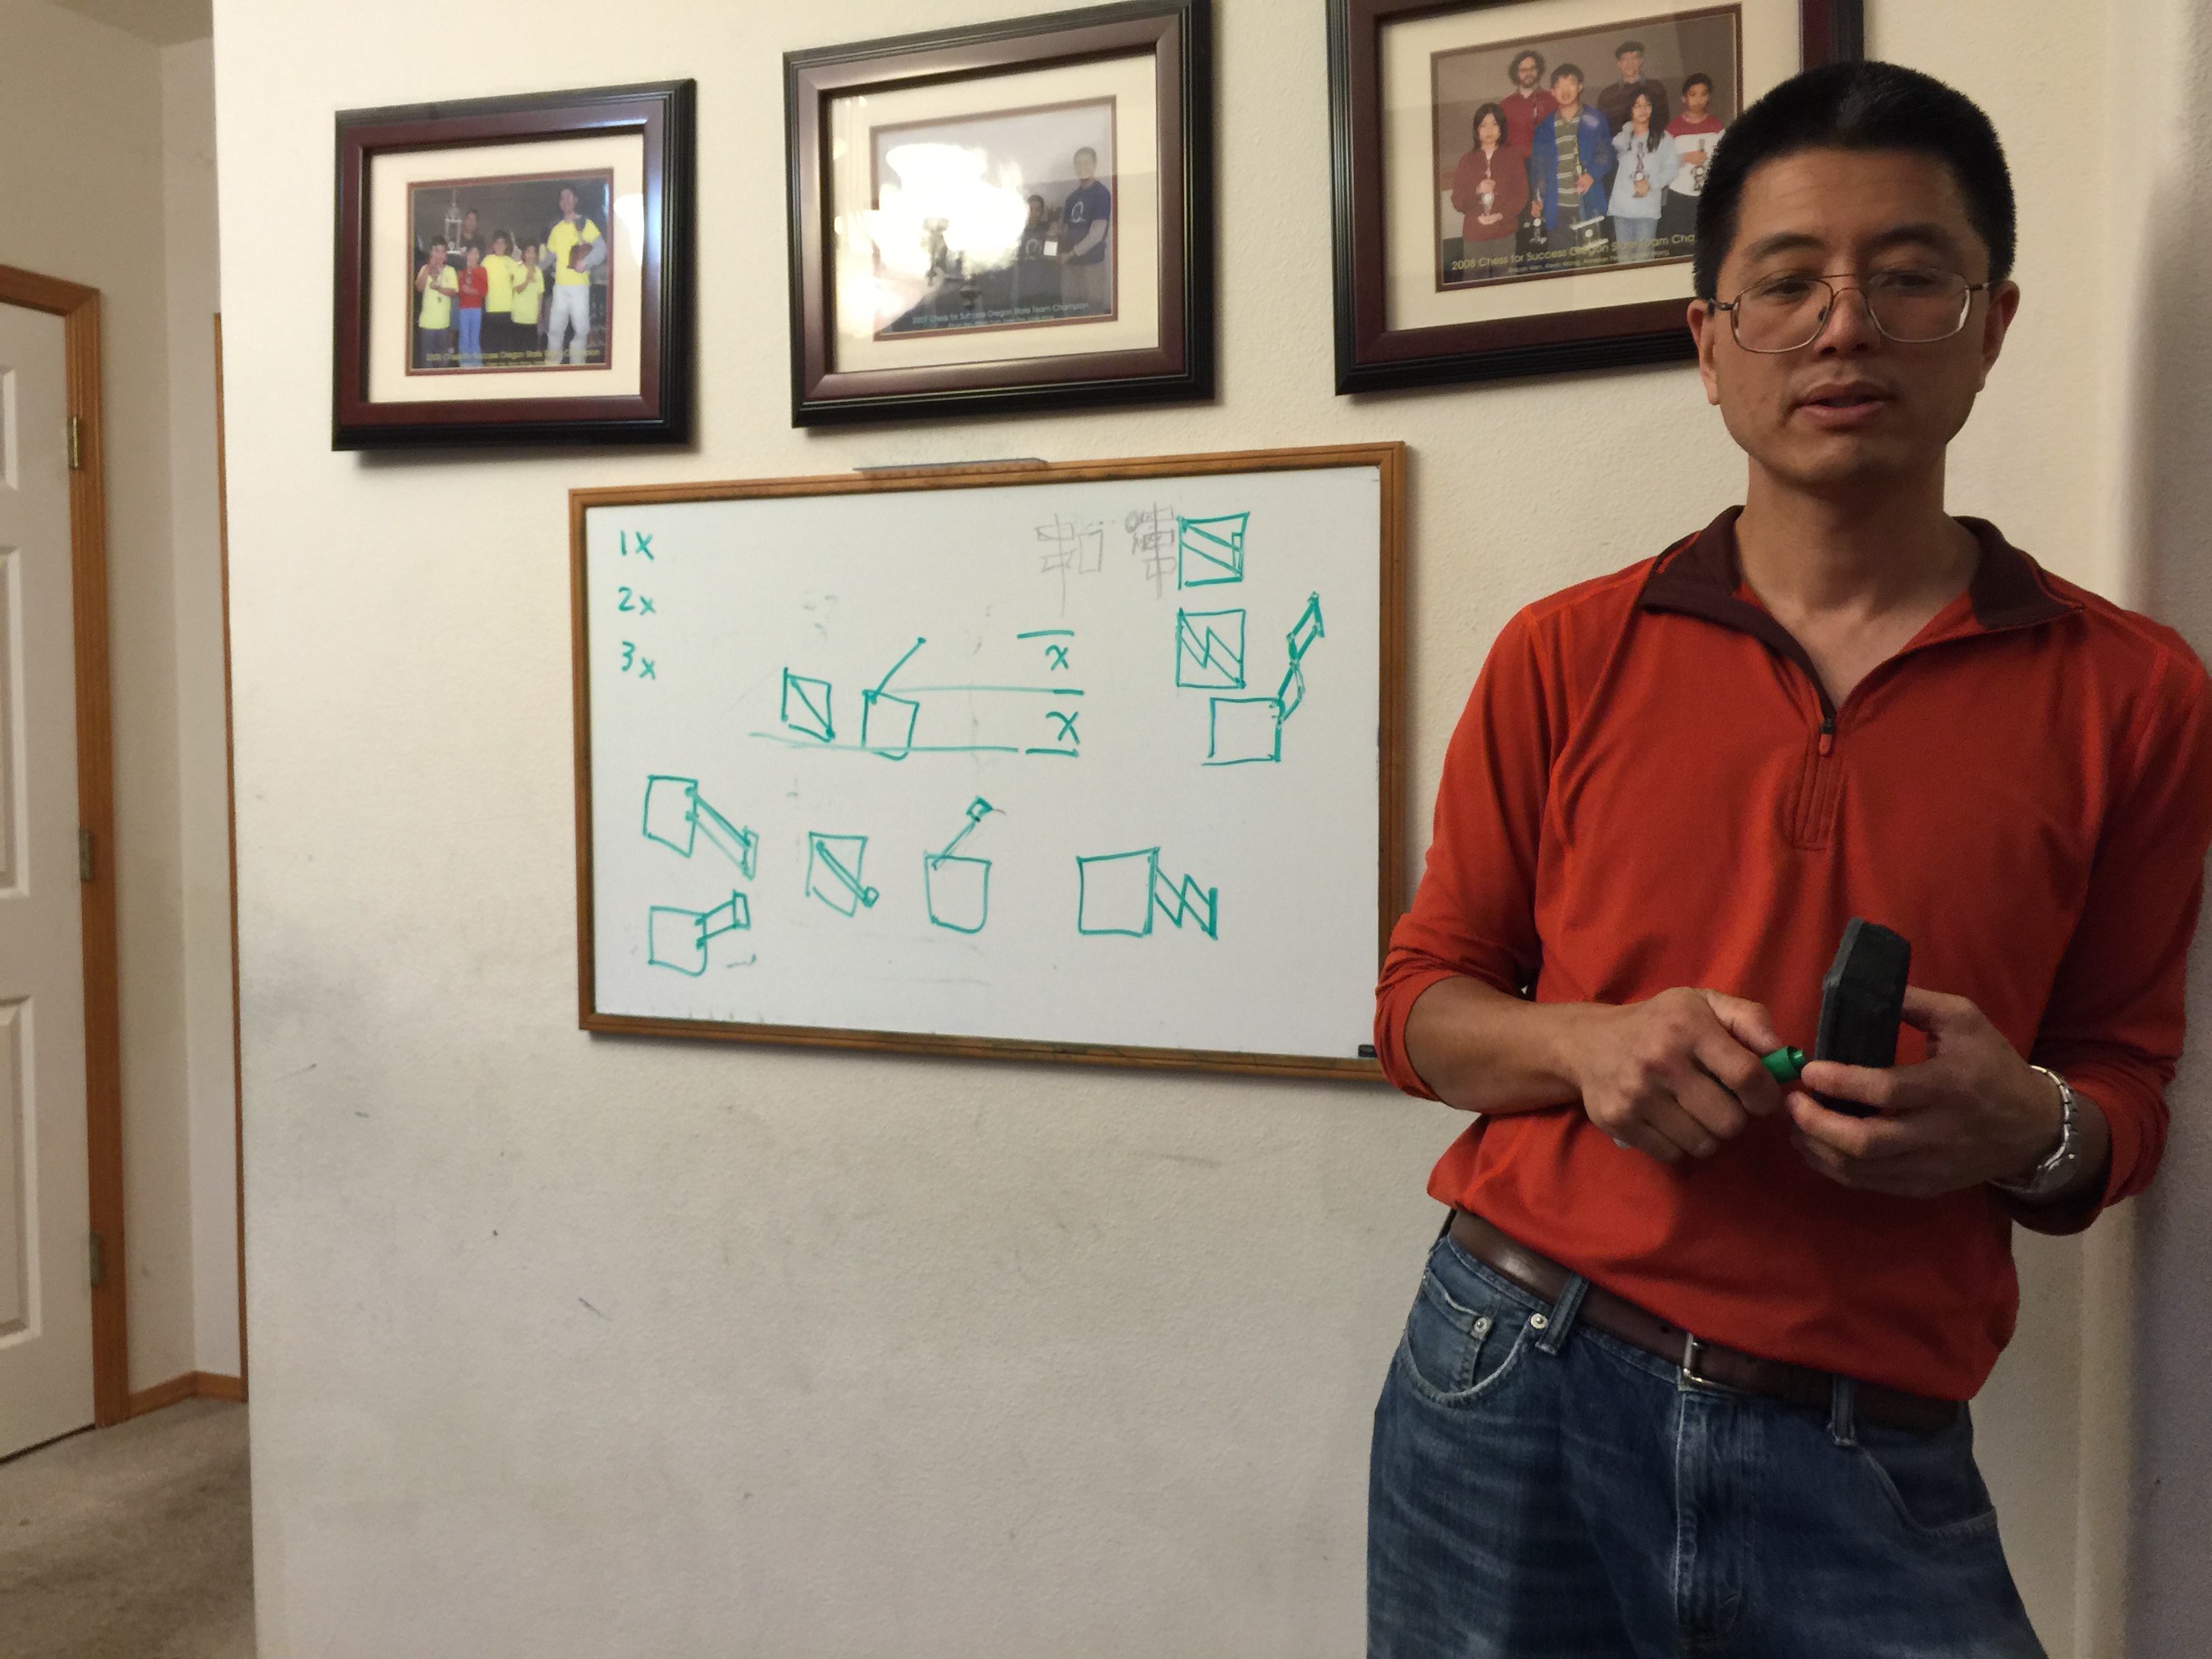 2008 Chess for Success Oregon State Team Cha
2007 Chess for Success Oregon State Team Champion
Chess for Success Oregon State Team Champion
1x
2x
3x
x
x